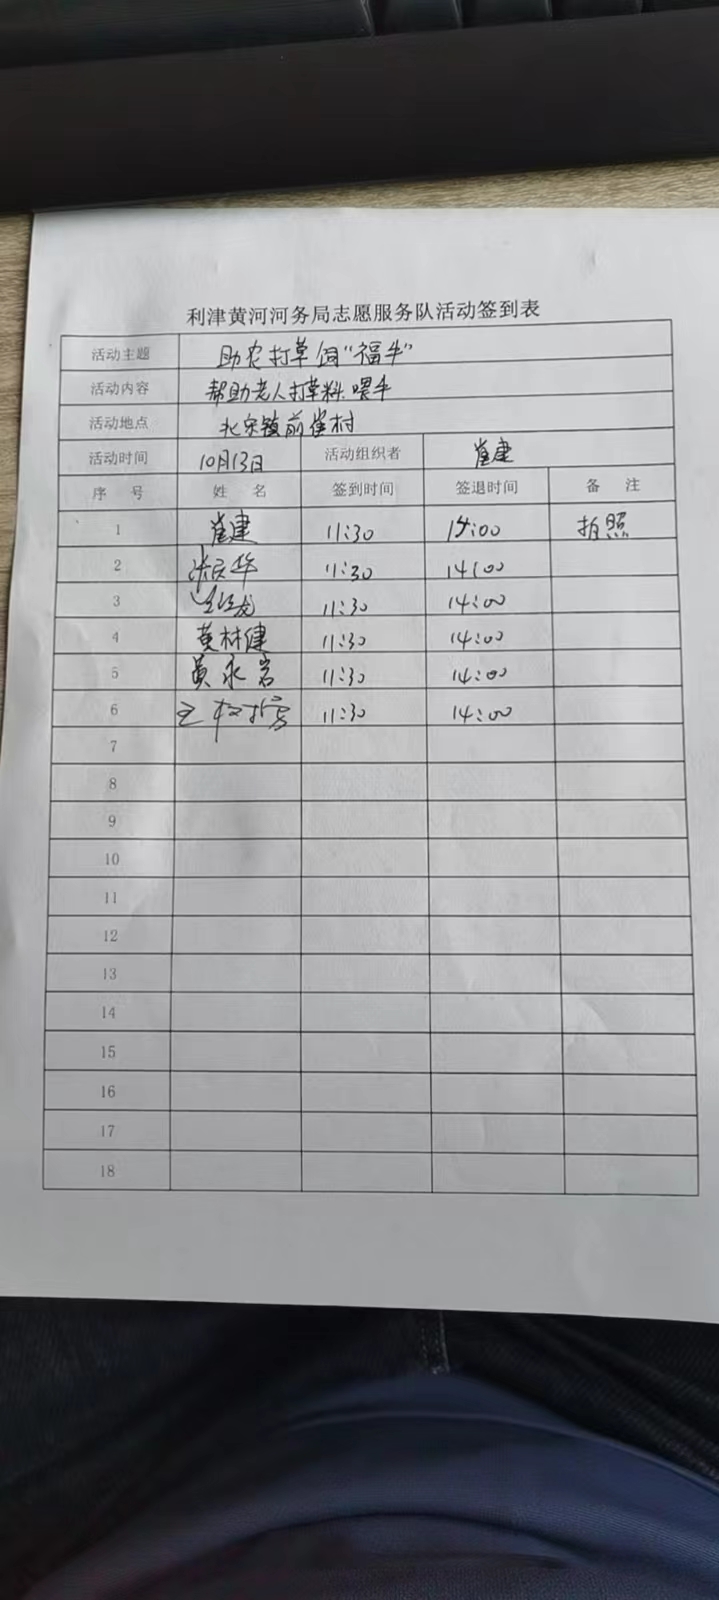 利津黄河河务局志愿服务队活动签到表
活动主题 助农打草饲“福牛”
活动内容 帮助老人打草料.喂牛
活动地点 北宋镇前崔村
活动时间 10月13日 活动组织者 崔建
序 号 姓 名 签到时间 签退时间 备 注
1 崔建 11:30 15:00 拍照
2 11:30 14:00
3 11:30 14:00
4 黄林健 11:30 14:00
5 黄永岩 11:30 14:00
6 11:30 14:00
7
8
9
10
11
12
13
14
15
16
17
18